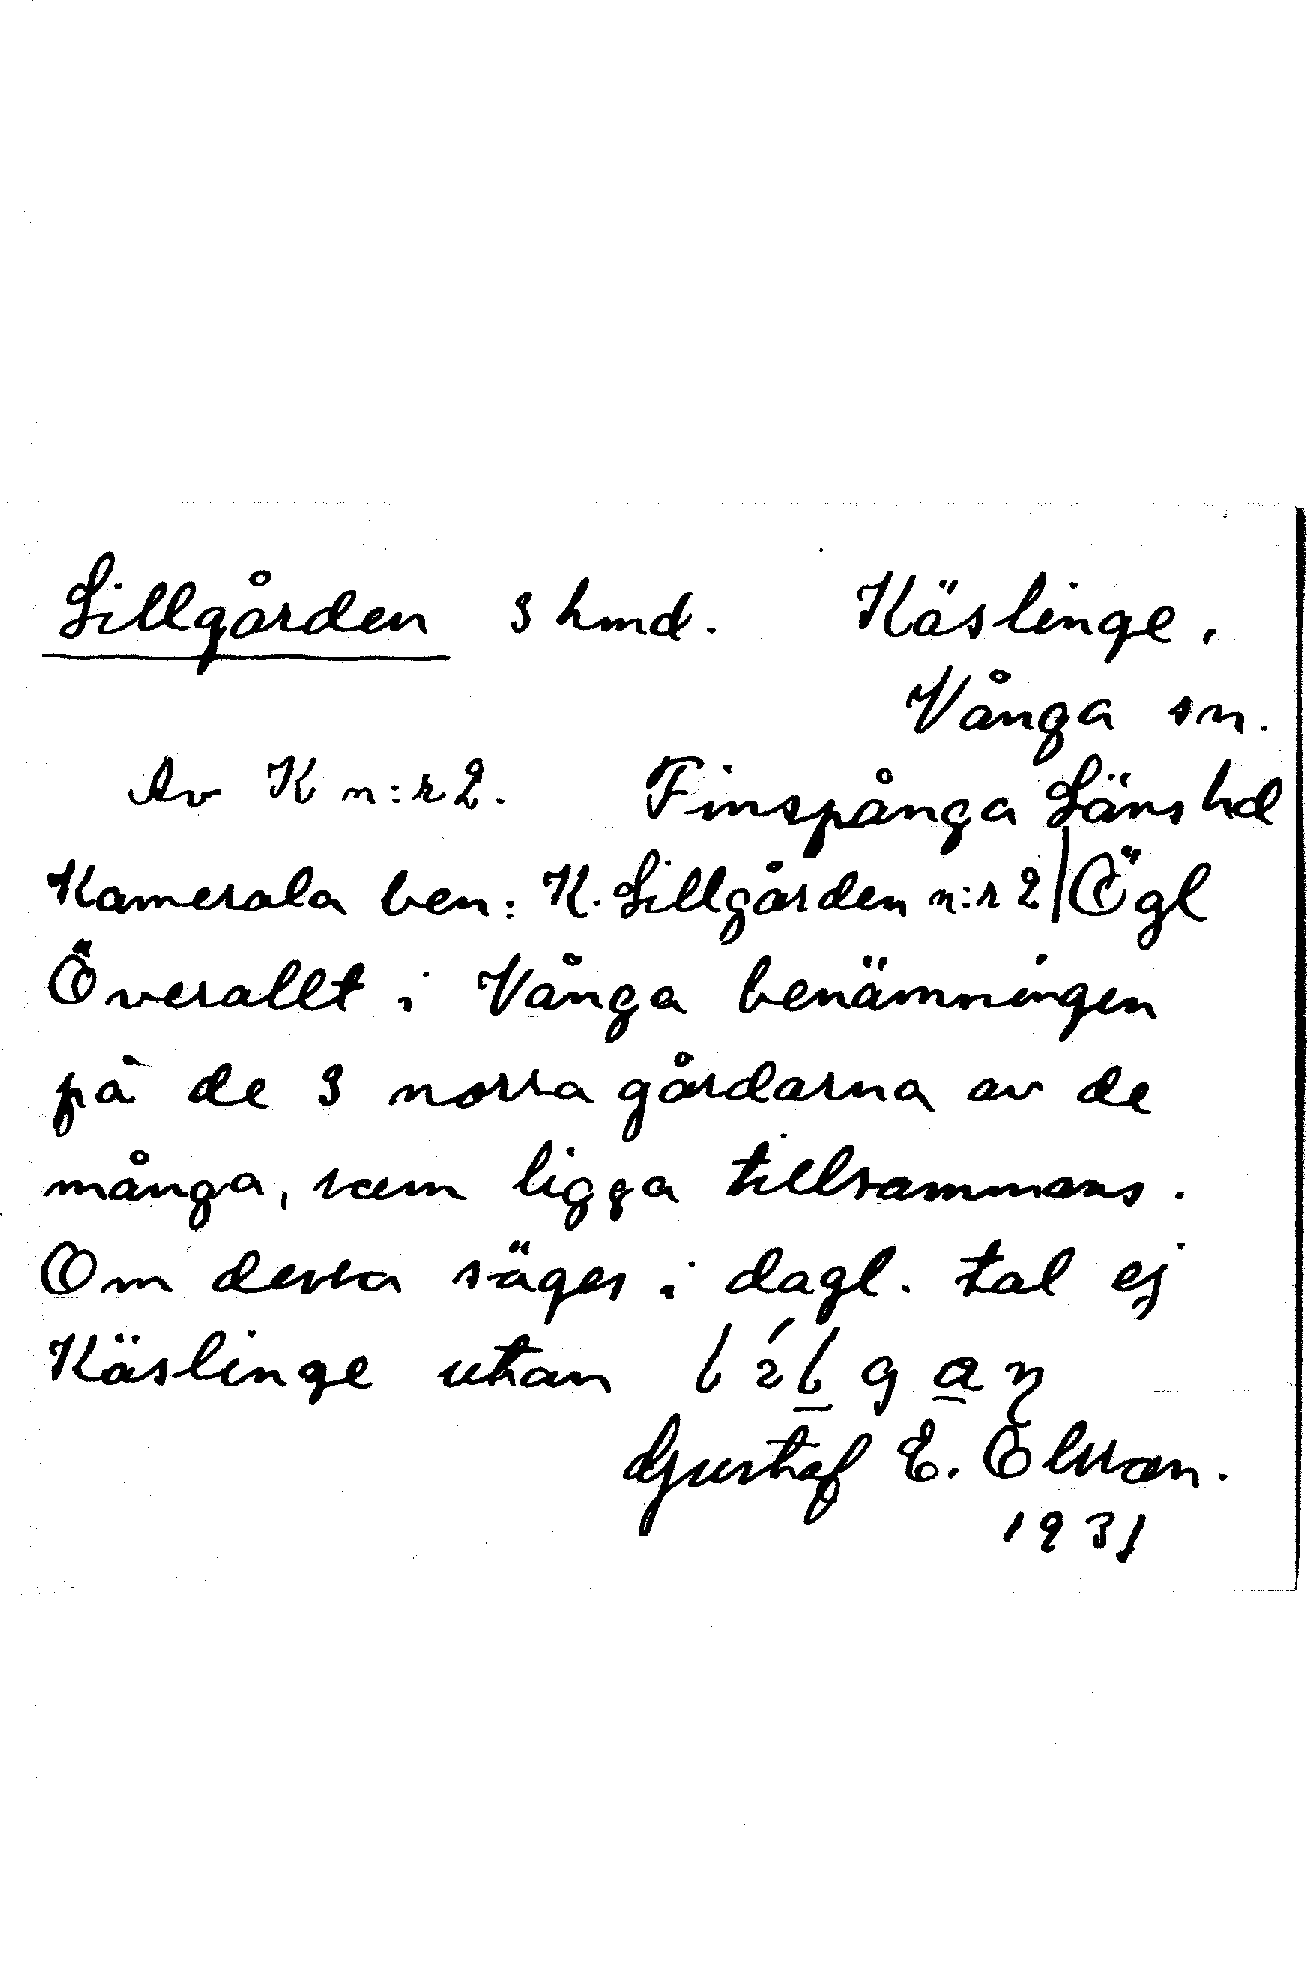 Lillgården 3 hmd. Käslinge.
Vånga sn.
Av K n:r 2. Finspånga Läns hd
Kamerala ben: K. Lillgården n:r 2 | Ögl
Överallt i Vånga benämningen
på de 3 norra gårdarna av de
många, som ligga tillsammans.
Om dessa säges i dagl. tal ej
Käslinge utan
Gustaf E. Olsson.
1931